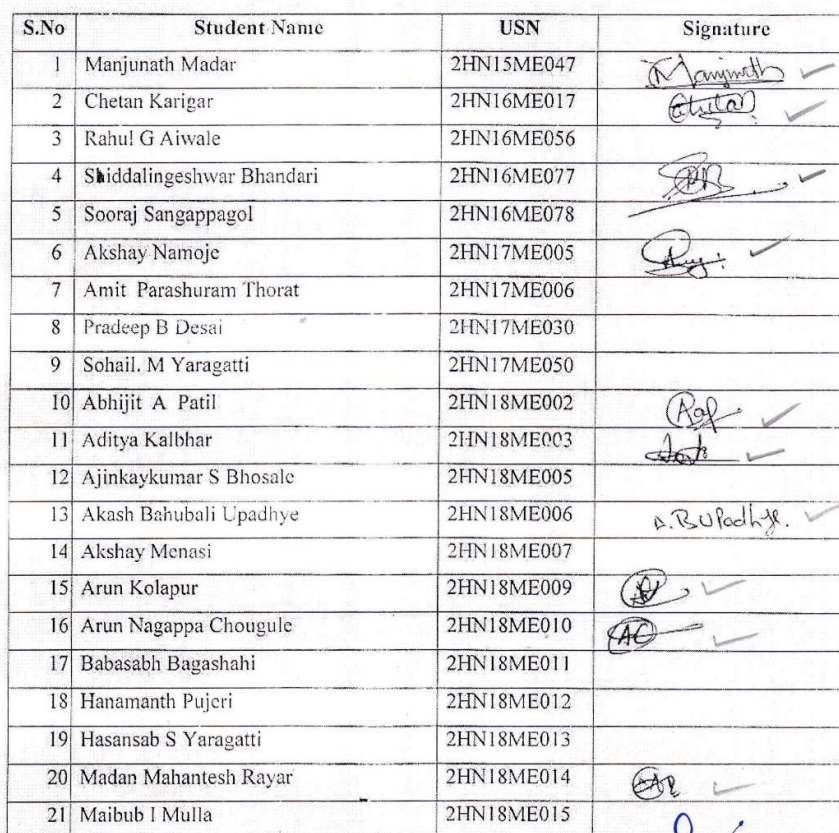 S.No Student Name USN Signature
1 Manjunath Madar 2HN15ME047 Manjunath
2 Chetan Karigar 2HN16ME017 Chetan
3 Rahul G Aiwale 2HN16ME056
4 Shiddalingeshwar Bhandari 2HN16ME077
5 Sooraj Sangappagol 2HN16ME078
6 Akshay Namoje 2HN17ME005
7 Amit Parashuram Thorat 2HN17ME006
8 Pradeep B Desai 2HN17ME030
9 Sohail. M Yaragatti 2HN17ME050
10 Abhijit A Patil 2HN18ME002
11 Aditya Kalbhar 2HN18ME003
12 Ajinkaykumar S Bhosale 2HN18ME005
13 Akash Bahubali Upadhye 2HN18ME006 A.B Upadhye.
14 Akshay Menasi 2HN18ME007
15 Arun Kolapur 2HN18ME009
16 Arun Nagappa Chougule 2HN18ME010 AC
17 Babasabh Bagashahi 2HN18ME011
18 Hanamanth Pujeri 2HN18ME012
19 Hasansab S Yaragatti 2HN18ME013
20 Madan Mahantesh Rayar 2HN18ME014
21 Maibub I Mulla 2HN18ME015